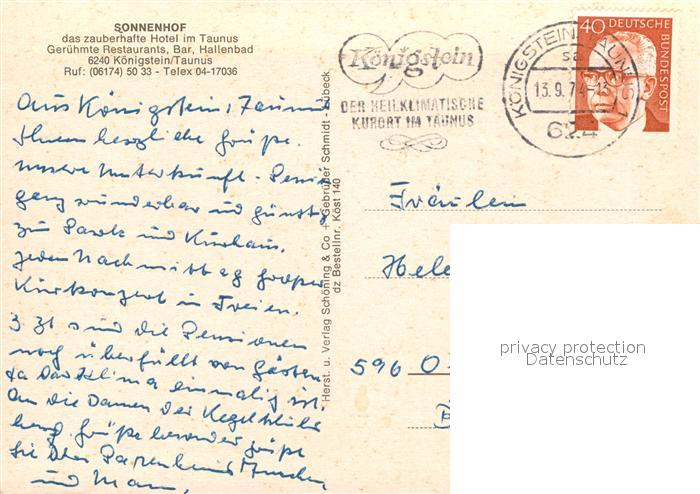 SONNENHOF
das zauberhafte Hotel im Taunus
Gerühmte Restaurants, Bar, Hallenbad
6240 Königstein/Taunus
Ruf: (06174) 50 33 - Telex 04-17036
Königstein
DER HEILKLIMATISCHE
KURORT IM TAUNUS
KÖNIGSTEIN, TAUNUS 1
sa
13.9.74-13
624
40 DEUTSCHE
BUNDESPOST
Aus Königstein, Taunus
Ihnen herzliche Grüße.
unsere Unterkunft - Pension
ganz wunderbar und günstig
zum Park und Kurhaus.
jeden Nachmittag großes
Kurkonzert im Freien.
z. Zt sind die Pensionen
noch überfüllt von Gästen
da das Klima einmalig ist.
An die Damen der
Grüße besonders Grüße
Sie
und Mann,
Herst. u. Verlag Schöning & Co + Gebrüder Schmidt - Lübeck
dz Bestellnr. Köst 140
Fräulein
Hele
596 O
privacy protection
Datenschutz